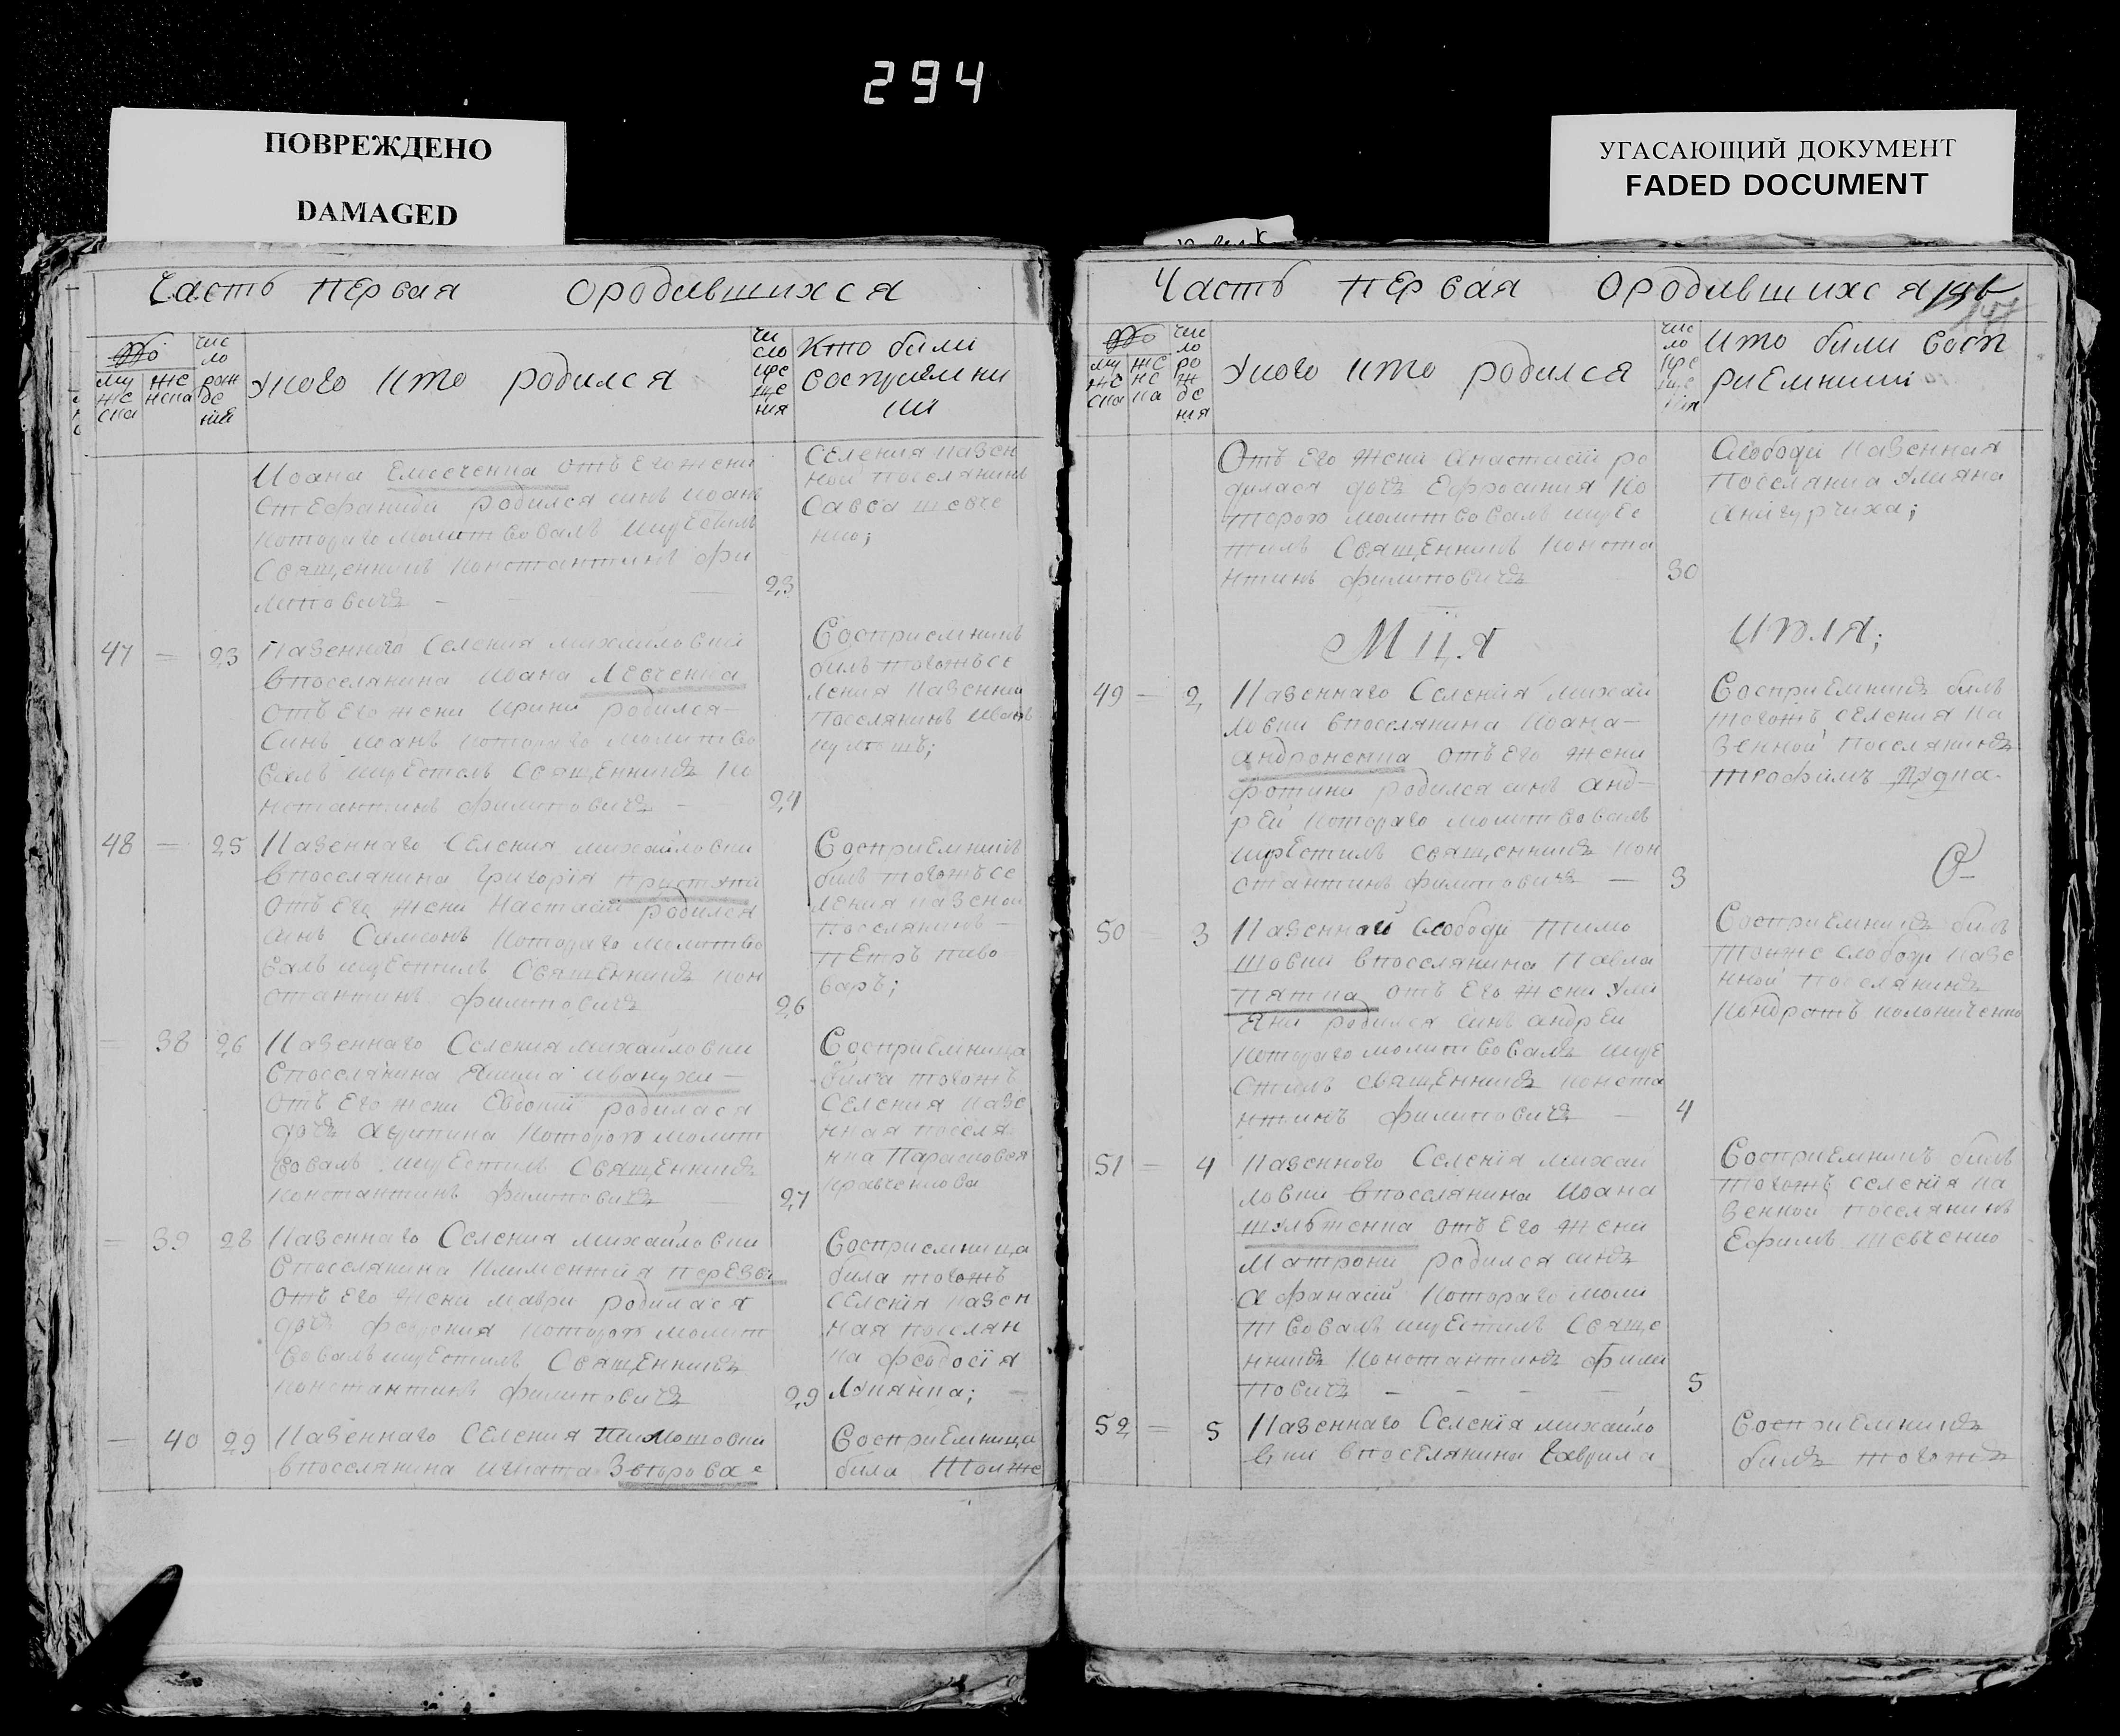 294
ПОВРЕЖДЕНО
DAMAGED
УГАСАЮЩИЙ ДОКУМЕНТ
FADED DOCUMENT
Часть первая ородившихся
му же ска
же нска
чис ло рож де ния
Укого кто родился
чи сло кре ще ния
Кто били
восприемни
ки
Иоана Емесченка отъ его жени
Стефаниди родился синъ иоанъ
котораго молитвовалъ икрестилъ
Священникъ Константинъ фи
липовичъ - - -
23
Селения казен
ной поселянинъ
Савва шевче
нко;
47 = 23 Казенного Селения михайловки
впоселянина ивана Левченка
отъ его жени ирини родился
Синъ иоанъ котораго молитво
валъ икрестилъ Священникъ Ко
нстантинъ филиповичъ -
24
Восприемникъ
билъ тогожъ се
ления казенний
поселянинъ иванъ
48 = 25 Казеннаго Селения михайловки
впоселянина григория
отъ его жени Настасии родился
синъ Симеонъ котораго молитво
валъ икрестилъ Священникъ Кон
стантинъ филиповичъ
26
Восприемникъ
билъ тогожъ се
ления казеной
поселянинъ -
петръ пиво
варъ;
= 38 26 Казеннаго Селения михайловки
впоселянина якима иванухи -
отъ его жени Евдокии родилася
дочъ агрипина которою молит
вовалъ икрестилъ Священникъ
Константинъ филиповичъ -
27
Восприемница
била тогожъ
Селения казе
нная поселя
нка Парасковея
кравченкова
= 39 28 Казеннаго Селения михайловки
впоселянина климентия
отъ его жени маври родилася
дочъ феврония которою молит
вовалъ икрестилъ Священникъ
Константинъ филиповичъ
29
Восприемница
била тогожъ
Селения казен
ная поселян
ка феодосїя
— 40 29 Казеннаго Селения тимошовки
впоселянина игната
Восприемница
била тоиже
Часть первая ородившихся
147
му же ска
же нс ка
чис ло ро ж де ния
Укого кто родился
чис ло кре ще ния
кто били восп
риемники
Отъ его жени анастасии ро
дилася дочъ Ефросиния ко
торою молитвовалъ икрес
тилъ Священникъ Конста
нтинъ филиповичъ
30
Слободи казенная
поселянка улияна
Мц.я июля;
49 — 2 Казеннаго Селения михай
ловки впоселянина иоана -
андроненка отъ его жени
фотини родился синъ анд-
рей котораго молитвовалъ
икрестилъ священникъ кон
стантинъ филиповичъ —
3
Восприемникъ билъ
тогожъ селения ка
зенной поселянинъ
трофимъ
50 — 3 Казенной Слободи тимо
шовки впоселянина Павла
пятка отъ его жени ули
яни родился синъ андрей
котораго молитвовалъ икре
стилъ священникъ конста
нтинъ филиповичъ —
4
Восприемникъ билъ
тоиже слободи казе
нной поселянинъ
51 = 4 Казенного Селения михай
ловки впоселянина иоана
шульженка отъ его жени
матрони родился синъ
афанасий котораго моли
твовалъ икрестилъ Свяще
нникъ Константинъ фили
повичъ - - - -
5
Восприемникъ билъ
тогожъ селения ка
зенной поселянинъ
Ефимъ шевченко
52 = 5 Казеннаго Селения михайло
вки впоселянина гаврила
Восприемникъ
билъ тогожъ